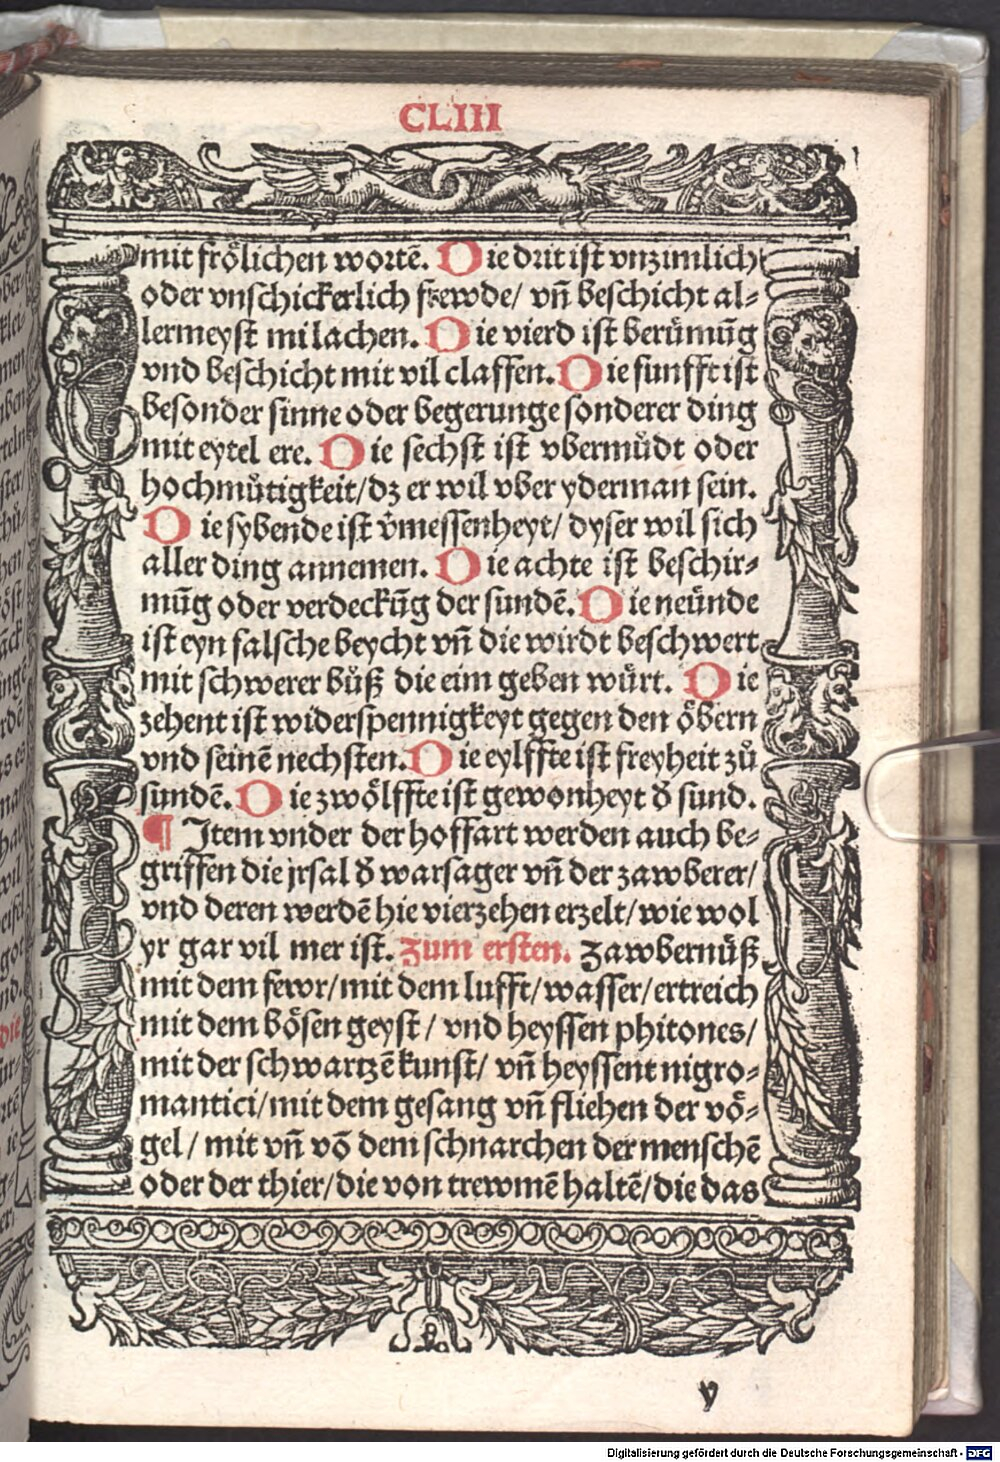 CLIII
mit frölichen wortē. Die drit ist vnzimlich
oder vnschickerlich frewde/ vñ beschicht al-
lermeyst mi lachen. Die vierd ist berümūg
vnd beschicht mit vil claffen. Die funfft ist
besonder sinne oder begerunge sonderer ding
mit eytel ere. Die sechst ist vbermuͦdt oder
hochmuͤtigkeit/dz er wil vber yderman sein.
Die sybende ist v̄messenheyt/ dyser wil sich
aller ding annemen. Die achte ist beschir-
mūg oder verdeckūg der sundē. Die neünde
ist eyn falsche beycht vñ die wirdt beschwert
mit schwerer buͦß die eim geben würt. Die
zehent ist widerspennigkeyt gegen den öbern
vnd seinē nechsten. Die eylffte ist freyheit zuͦ
sundē. Die zwölffte ist gewonheyt d̄ sund.
¶ Item vnder der hoffart werden auch be-
griffen die jrsal d̄ warsager vñ der zawberer/
vnd deren werdē hie vierzehen erzelt/wie wol
yr gar vil mer ist. Zum ersten. Zawbernuͤß
mit dem fewr/mit dem lufft/wasser/ertreich
mit dem bösen geyst/ vnd heyssen phitones/
mit der schwartzē kunst/ vñ heyssent nigro-
mantici/mit dem gesang vñ fliehen der vö-
gel/ mit vñ vō dem schnarchen der menschē
oder der thier/die von trewmē haltē/die das
y
Digitalisierung gefördert durch die Deutsche Forschungsgemeinschaft - DFG